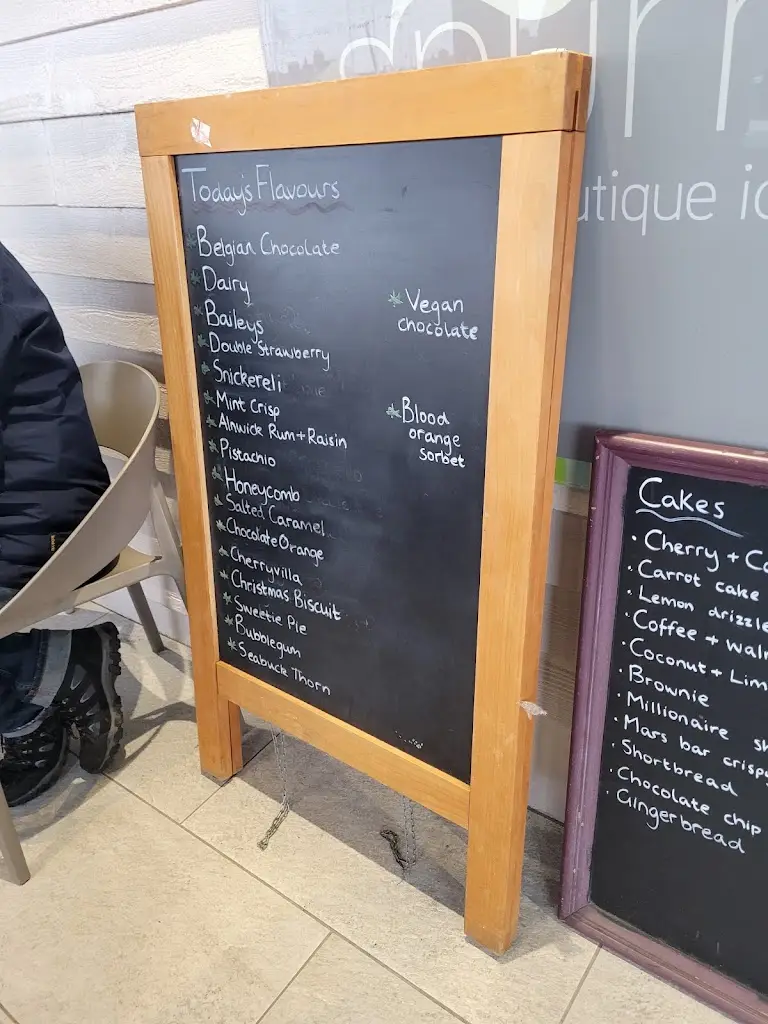 Today's Flavours
Belgian Chocolate
Dairy
Baileys
Double Strawberry
Snickereli
Mint Crisp
Alnwick Rum+Raisin
Pistachio
Honeycomb
Salted Caramel
Chocolate Orange
Cherryvilla
Christmas Biscuit
Sweetie Pie
Bubblegum
Seabuck Thorn
Vegan
chocolate
Blood
orange
Sorbet
utique ic
Cakes
Cherry + Co
Carrot cake
Lemon drizzle
Coffee + waln
Coconut + Lim
Brownie
Millionaire sh
Mars bar crispy
Shortbread
Chocolate chip
Gingerbread